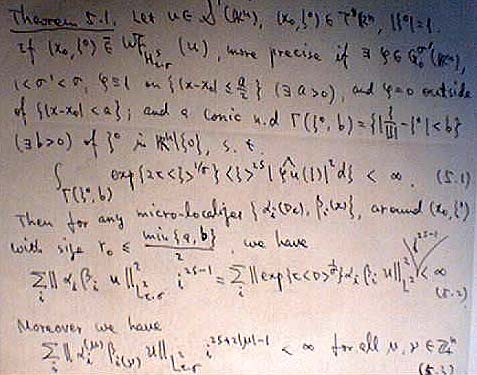 Theorem 5.1. Let u ∈ S'(R^n), (x₀, ξ°) ∈ T*R^n, |ξ°|=1.
If (x₀, ξ°) ∉ WF (u), more precise if ∃ φ ∈ G₀^σ'(R^n),
1<σ'<σ, φ≡1 on {|x-x₀| ≤ a/2} (∃ a>0), and φ=0 outside
of {|x-x₀|<a}; and a conic n.d Γ(ξ°, b) = {|ξ/|ξ| - ξ°|<b}
(∃ b>0) of ξ° in R^n\{0}, s.t.
∫_Γ(ξ°,b) exp{2τ<ξ>^1/σ} <ξ>^2s |φ̂u(ξ)|² dξ < ∞. (5.1)
Then for any microlocalizer {α_i(D), β_i(x)}, around (x₀, ξ°)
with size r₀ ≤ min{a,b}/2, we have
Σ_i ||α_i β_i u||²_L²_τ,σ i^2s-1 = Σ_i ||exp{τ<D>^1/σ} α_i β_i u||²_L² i^2s-1 < ∞
(5.2)
Moreover we have
Σ_i ||α_i^(μ) β_i(ν) u||²_L²_τ,σ i^2s+2|μ|-1 < ∞ for all μ, ν ∈ Z₊^n
(5.3)